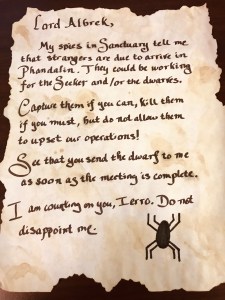 Lord Albrek,
My spies in Sanctuary tell me
that strangers are due to arrive in
Phandalin. They could be working
for the Seeker and/or the dwarves.
Capture them if you can, kill them
if you must, but do not allow them
to upset our operations!
See that you send the dwarf to me
as soon as the meeting is complete.
I am counting on you, Ierro. Do not
disappoint me.